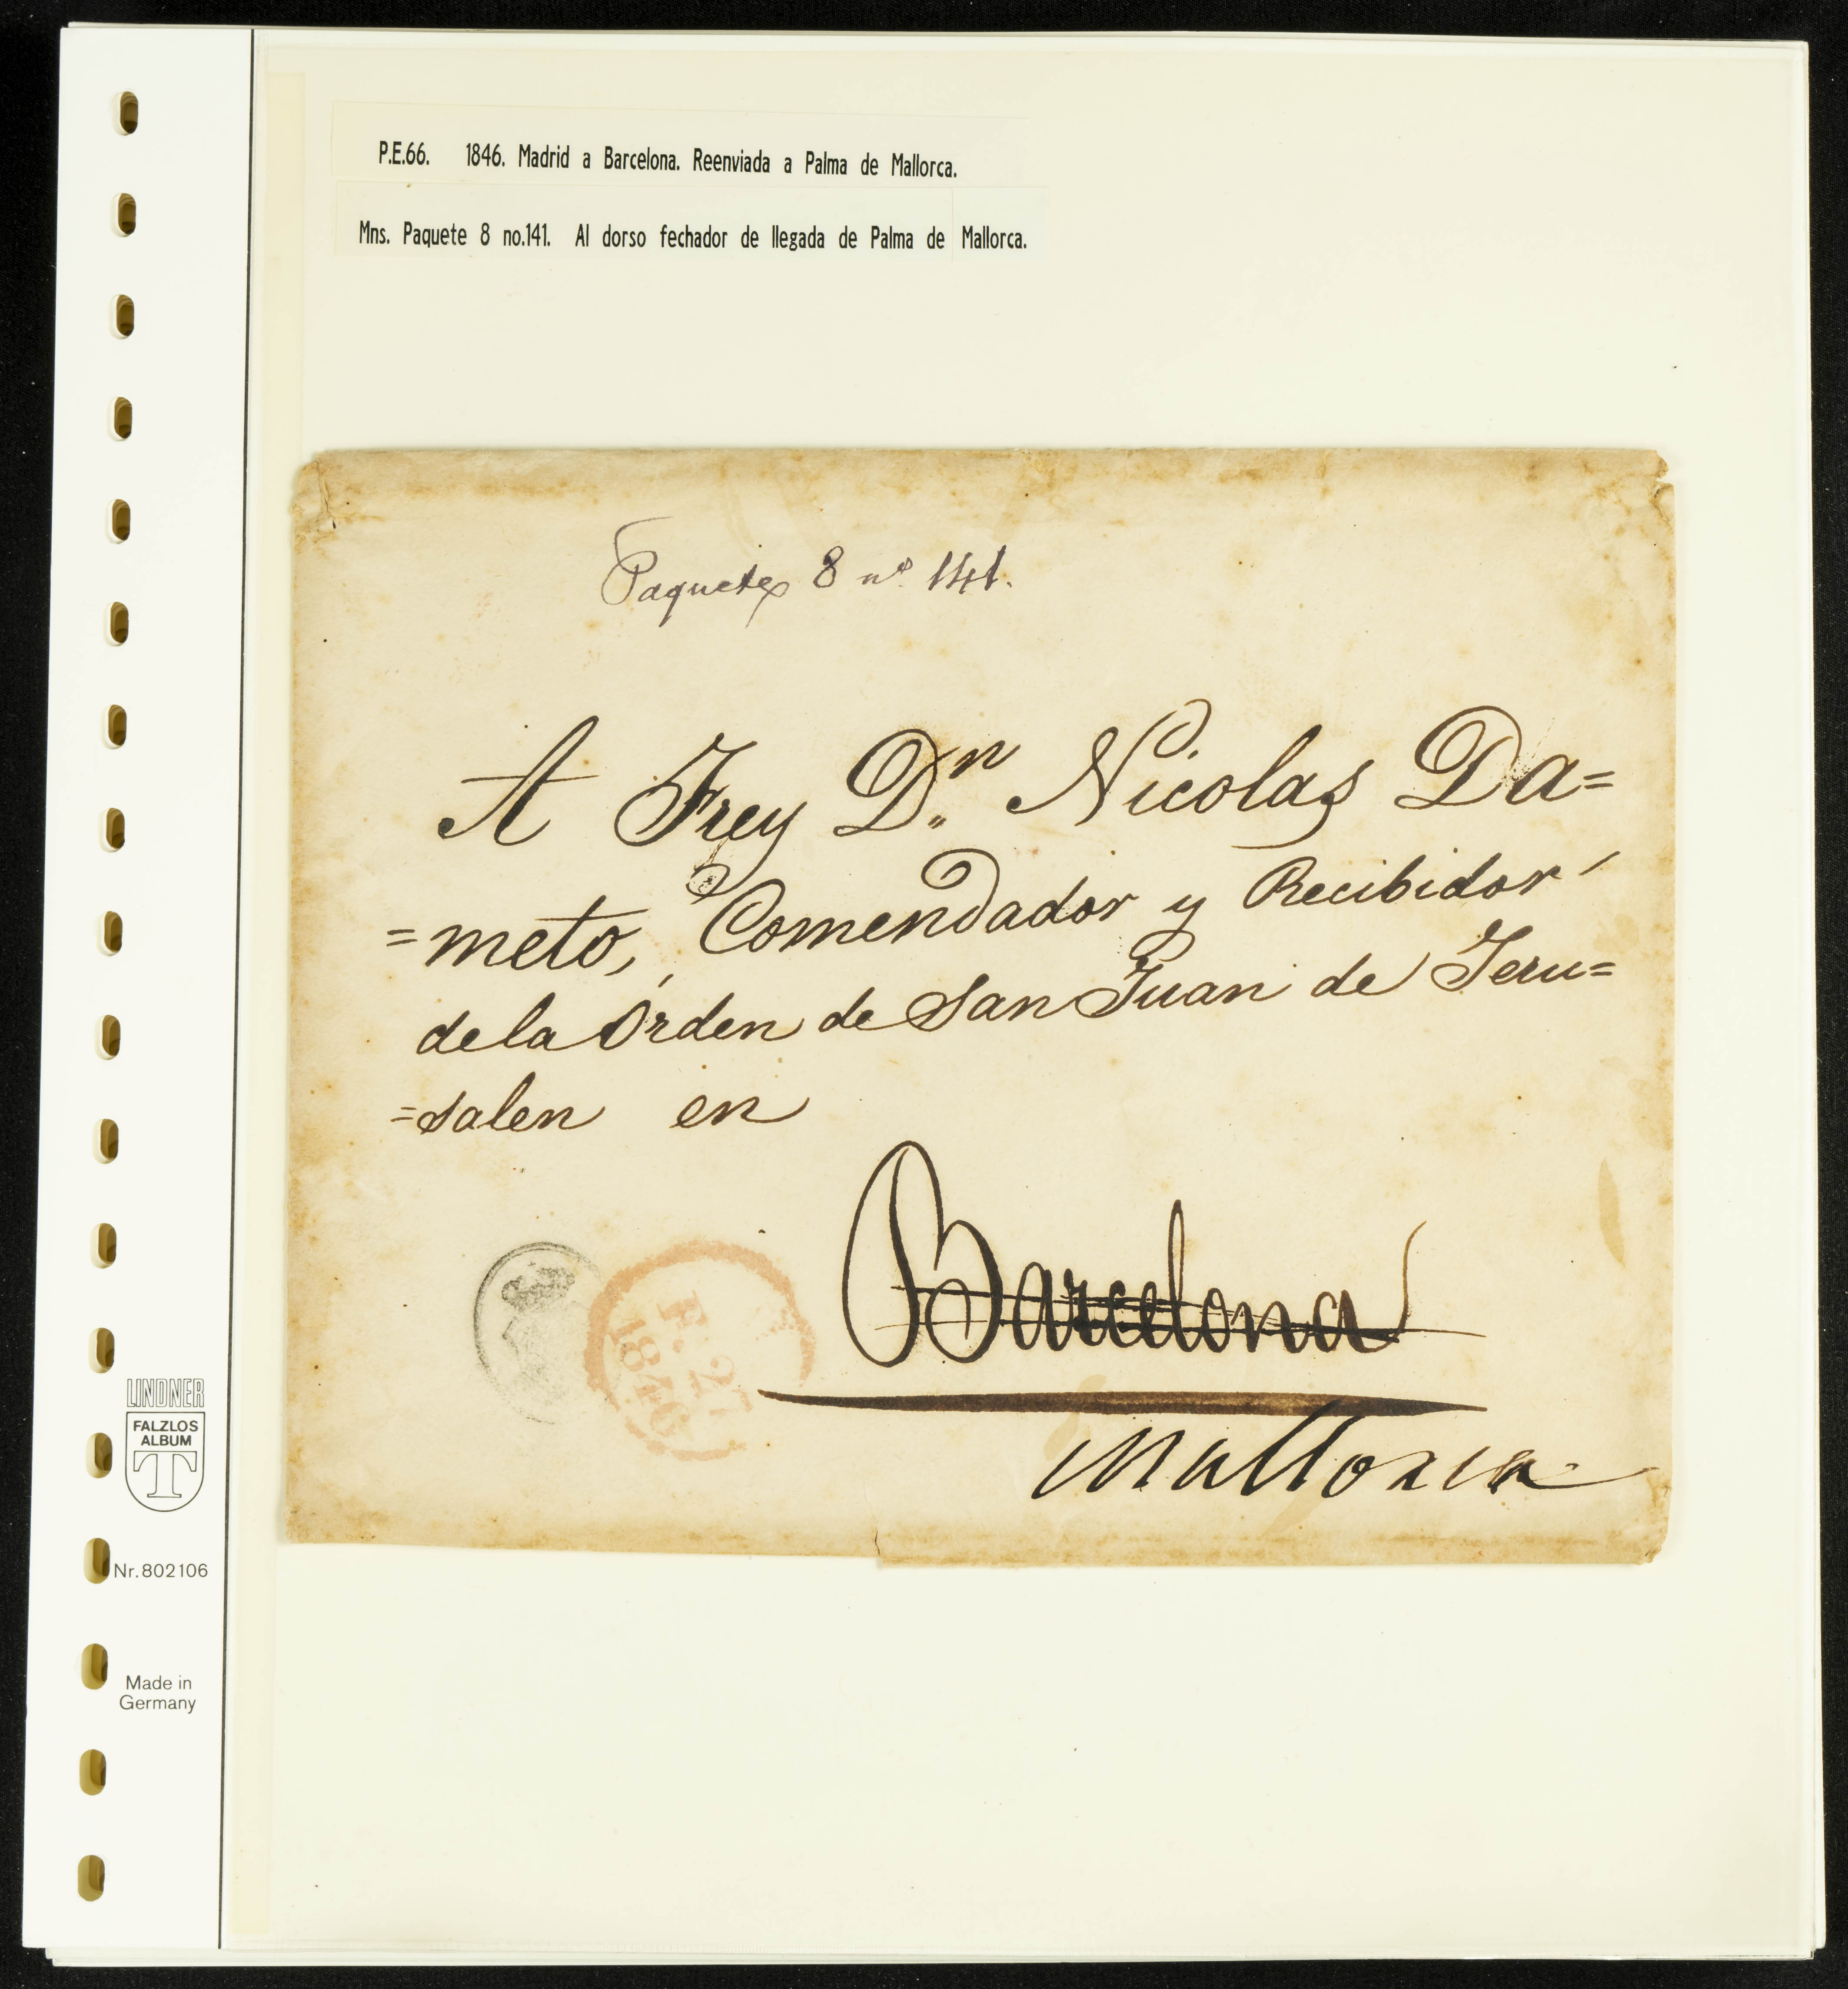 P.E.66. 1846. Madrid a Barcelona. Reenviada a Palma de Mallorca.
Mns. Paquete 8 no.141. Al dorso fechador de llegada de Palma de Mallorca.
Paquete 8 nº 141.
A Frey D.ⁿ Nicolas Da=
=meto, Comendador y Recibidor
de la Orden de San Juan de Jeru=
=salen en
Barcelona
Mallorca
F. 27
1846
LINDNER
FALZLOS
ALBUM
T
Nr. 802106
Made in
Germany